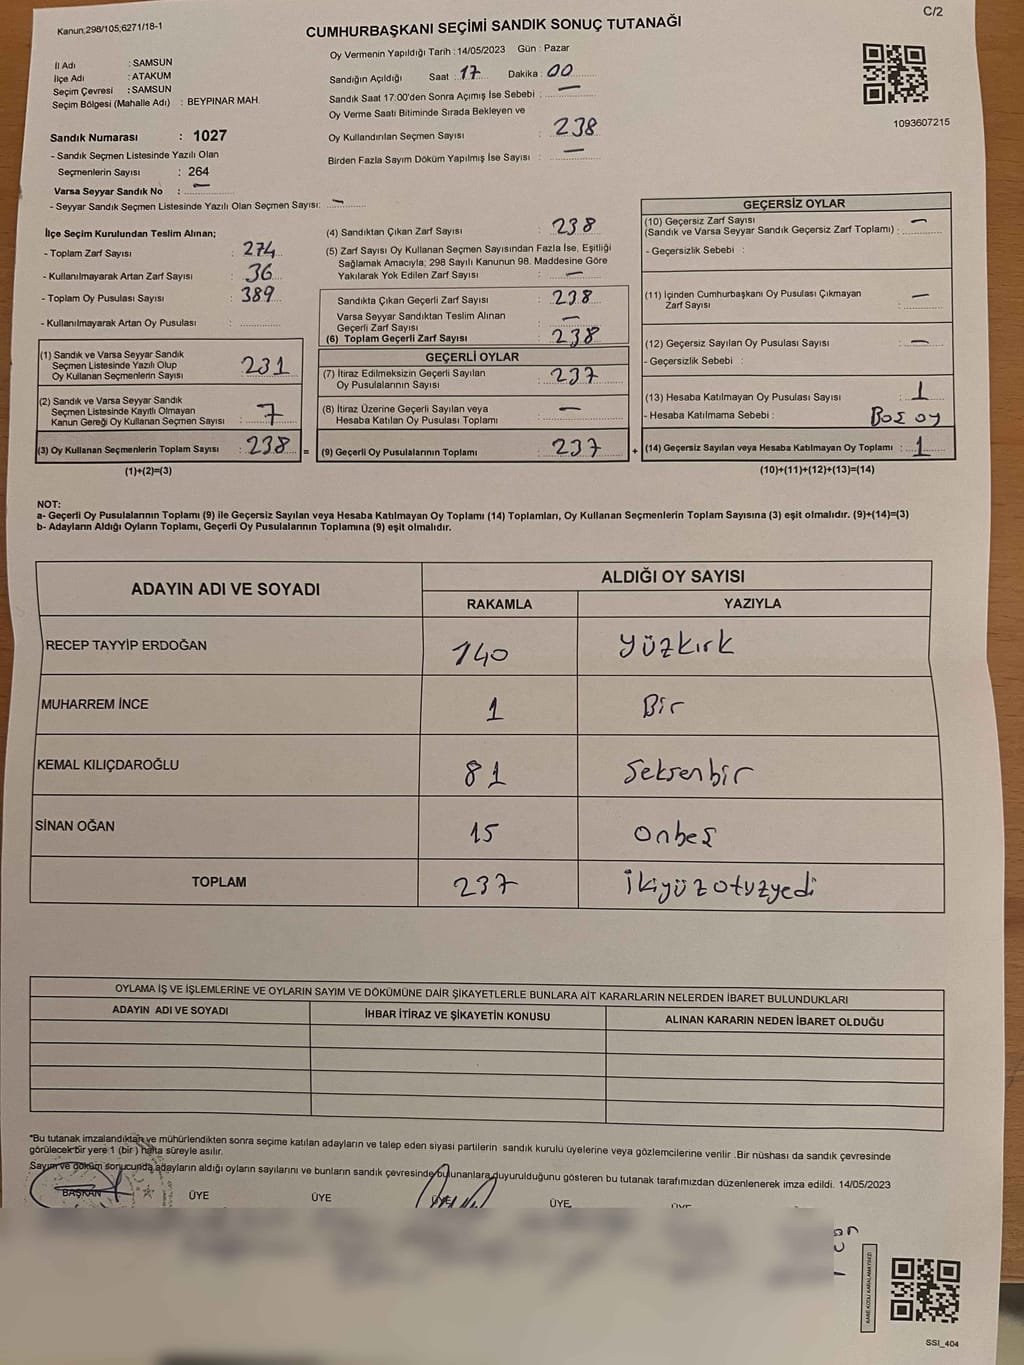 C/2
Kanun;298/105;6271/18-1
CUMHURBAŞKANI SEÇİMİ SANDIK SONUÇ TUTANAĞI
Oy Vermenin Yapıldığı Tarih : 14/05/2023 Gün : Pazar
İl Adı : SAMSUN
İlçe Adı : ATAKUM
Seçim Çevresi : SAMSUN
Seçim Bölgesi (Mahalle Adı) : BEYPINAR MAH.
Sandığın Açıldığı Saat : 17 Dakika : 00
Sandık Saat 17:00'den Sonra Açımış İse Sebebi : —
Oy Verme Saati Bitiminde Sırada Bekleyen ve
Oy Kullandırılan Seçmen Sayısı : 238
Birden Fazla Sayım Döküm Yapılmış İse Sayısı : —
1093607215
Sandık Numarası : 1027
- Sandık Seçmen Listesinde Yazılı Olan
Seçmenlerin Sayısı : 264
Varsa Seyyar Sandık No : —
- Seyyar Sandık Seçmen Listesinde Yazılı Olan Seçmen Sayısı: —
İlçe Seçim Kurulundan Teslim Alınan;
- Toplam Zarf Sayısı : 274
- Kullanılmayarak Artan Zarf Sayısı : 36
- Toplam Oy Pusulası Sayısı : 389
- Kullanılmayarak Artan Oy Pusulası :
(1) Sandık ve Varsa Seyyar Sandık
Seçmen Listesinde Yazılı Olup
Oy Kullanan Seçmenlerin Sayısı : 231
(2) Sandık ve Varsa Seyyar Sandık
Seçmen Listesinde Kayıtlı Olmayan
Kanun Gereği Oy Kullanan Seçmen Sayısı : 7
(3) Oy Kullanan Seçmenlerin Toplam Sayısı : 238 =
(1)+(2)=(3)
(4) Sandıktan Çıkan Zarf Sayısı : 238
(5) Zarf Sayısı Oy Kullanan Seçmen Sayısından Fazla İse, Eşitliği
Sağlamak Amacıyla; 298 Sayılı Kanunun 98. Maddesine Göre
Yakılarak Yok Edilen Zarf Sayısı : —
Sandıkta Çıkan Geçerli Zarf Sayısı : 238
Varsa Seyyar Sandıktan Teslim Alınan
Geçerli Zarf Sayısı : —
(6) Toplam Geçerli Zarf Sayısı : 238
GEÇERLİ OYLAR
(7) İtiraz Edilmeksizin Geçerli Sayılan
Oy Pusulalarının Sayısı : 237
(8) İtiraz Üzerine Geçerli Sayılan veya
Hesaba Katılan Oy Pusulası Toplamı : —
(9) Geçerli Oy Pusulalarının Toplamı : 237 +
GEÇERSİZ OYLAR
(10) Geçersiz Zarf Sayısı
(Sandık ve Varsa Seyyar Sandık Geçersiz Zarf Toplamı) : —
- Geçersizlik Sebebi :
(11) İçinden Cumhurbaşkanı Oy Pusulası Çıkmayan
Zarf Sayısı : —
(12) Geçersiz Sayılan Oy Pusulası Sayısı : —
- Geçersizlik Sebebi :
(13) Hesaba Katılmayan Oy Pusulası Sayısı : 1
- Hesaba Katılmama Sebebi : Boş oy
(14) Geçersiz Sayılan veya Hesaba Katılmayan Oy Toplamı : 1
(10)+(11)+(12)+(13)=(14)
NOT:
a- Geçerli Oy Pusulalarının Toplamı (9) ile Geçersiz Sayılan veya Hesaba Katılmayan Oy Toplamı (14) Toplamları, Oy Kullanan Seçmenlerin Toplam Sayısına (3) eşit olmalıdır. (9)+(14)=(3)
b- Adayların Aldığı Oyların Toplamı, Geçerli Oy Pusulalarının Toplamına (9) eşit olmalıdır.
ADAYIN ADI VE SOYADI ALDIĞI OY SAYISI
RAKAMLA YAZIYLA
RECEP TAYYİP ERDOĞAN 140 Yüzkırk
MUHARREM İNCE 1 Bir
KEMAL KILIÇDAROĞLU 81 Seksenbir
SİNAN OĞAN 15 Onbeş
TOPLAM 237 İkiyüzotuzyedi
OYLAMA İŞ VE İŞLEMLERİNE VE OYLARIN SAYIM VE DÖKÜMÜNE DAİR ŞİKAYETLERLE BUNLARA AİT KARARLARIN NELERDEN İBARET BULUNDUKLARI
ADAYIN ADI VE SOYADI İHBAR İTİRAZ VE ŞİKAYETİN KONUSU ALINAN KARARIN NEDEN İBARET OLDUĞU
*Bu tutanak imzalandıktan ve mühürlendikten sonra seçime katılan adayların ve talep eden siyasi partilerin sandık kurulu üyelerine veya gözlemcilerine verilir .Bir nüshası da sandık çevresinde
görülecek bir yere 1 (bir ) hafta süreyle asılır.
Sayım ve döküm sonucunda adayların aldığı oyların sayılarını ve bunların sandık çevresinde bulunanlara duyurulduğunu gösteren bu tutanak tarafımızdan düzenlenerek imza edildi. 14/05/2023
BAŞKAN ÜYE ÜYE ÜYE ÜYE ÜYE
SSI_404